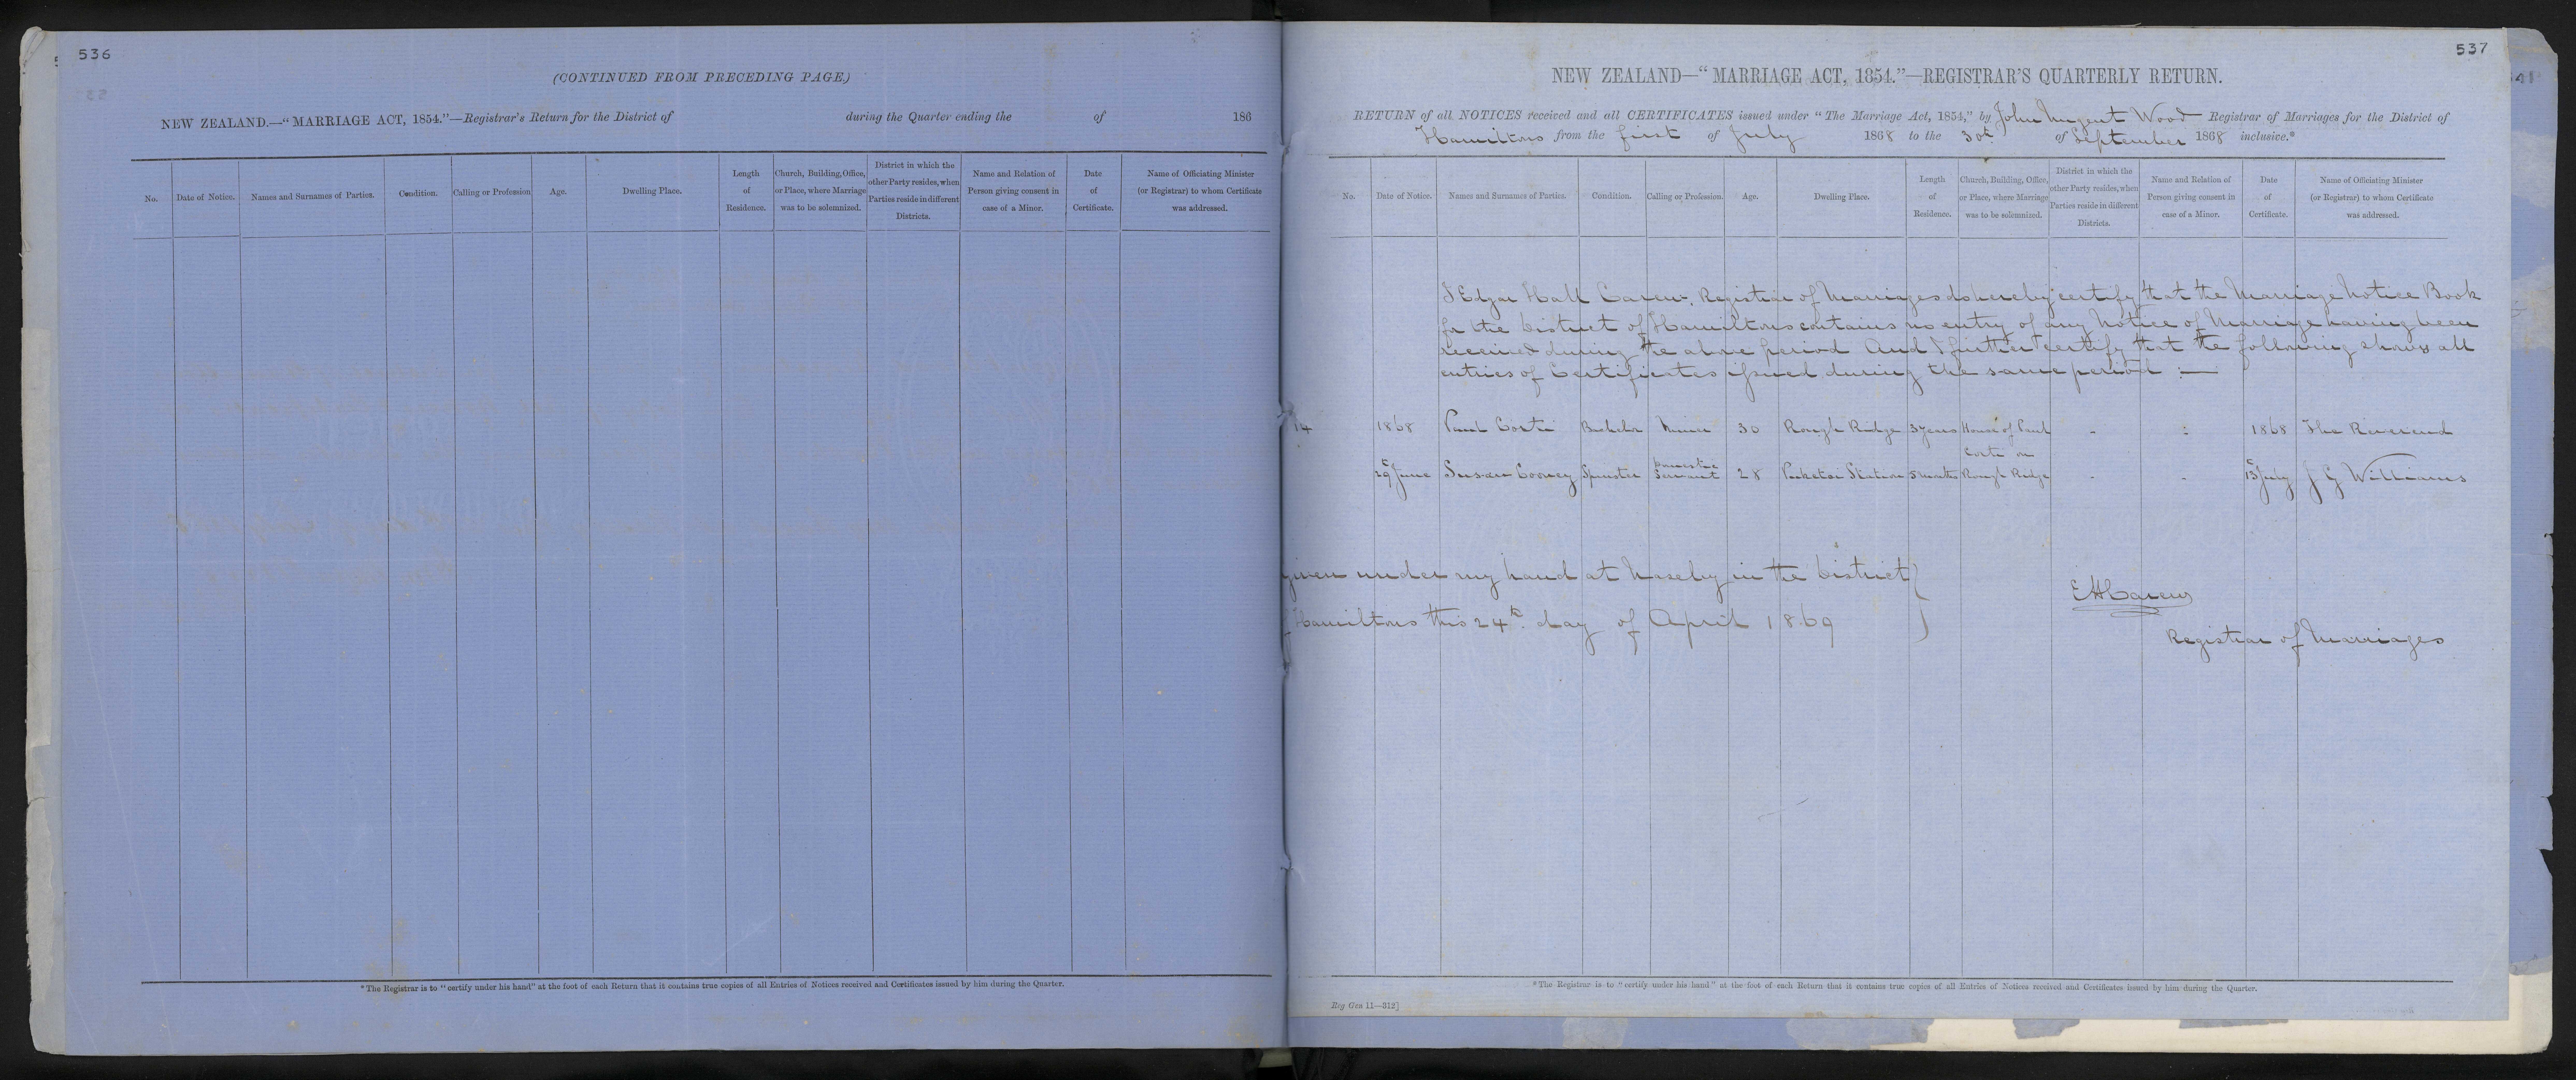 536
(CONTINUED FROM PRECEDING PAGE.)
NEW ZEALAND.—"MARRIAGE ACT, 1854."—Registrar's Return for the District of during the Quarter ending the of 186
No.
Date of Notice.
Names and Surnames of Parties.
Condition.
Calling or Profession
Age.
Dwelling Place.
Length
of
Residence.
Church, Building, Office,
or Place, where Marriage
was to be solemnized.
District in which the
other Party resides, when
Parties reside in different
Districts.
Name and Relation of
Person giving consent in
case of a Minor.
Date
of
Certificate.
Name of Officiating Minister
(or Registrar) to whom Certificate
was addressed.
*The Registrar is to "certify under his hand" at the foot of each Return that it contains true copies of all Entries of Notices received and Certificates issued by him during the Quarter.
537
NEW ZEALAND—"MARRIAGE ACT, 1854."—REGISTRAR'S QUARTERLY RETURN.
RETURN of all NOTICES received and all CERTIFICATES issued under "The Marriage Act, 1854," by John Nugent Wood Registrar of Marriages for the District of
Hamiltons from the first of July 1868 to the 30th of September 1868 inclusive.*
No.
Date of Notice.
Names and Surnames of Parties.
Condition.
Calling or Profession
Age.
Dwelling Place.
Length
of
Residence.
Church, Building, Office,
or Place, where Marriage
was to be solemnized.
District in which the
other Party resides, when
Parties reside in different
Districts.
Name and Relation of
Person giving consent in
case of a Minor.
Date
of
Certificate.
Name of Officiating Minister
(or Registrar) to whom Certificate
was addressed.
I Edgar Hall Carew, Registrar of Marriages do hereby certify that the Marriage Notice Book
for the District of Hamiltons contains no entry of any Notice of Marriage having been
received during the above period And I further certify that the following shows all
entries of Certificates issued during the same period :—
14 1868 Paul Corti Bachelor Miner 30 Rough Ridge 3 years House of Paul - - 1868 The Reverend
Corti on
29th June Susan Cooney Spinster Domestic Servant 28 Station 5 months Rough Ridge - - 13th July J G Williams
Given under my hand at Naseby in the District
of Hamiltons this 24th day of April 1869
E H Carew
Registrar of Marriages
*The Registrar is to "certify under his hand" at the foot of each Return that it contains true copies of all Entries of Notices received and Certificates issued by him during the Quarter.
Reg Gen 11—312]